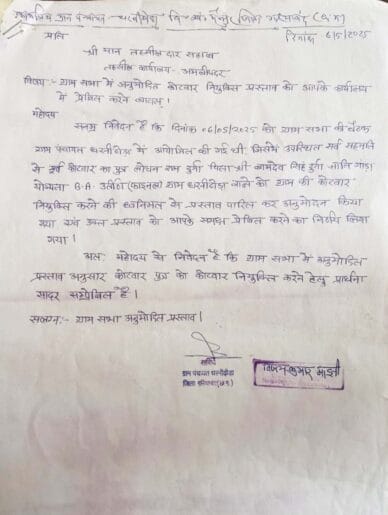 कार्यालय ग्राम पंचायत - धरनीडोडा वि.ख. मैनपुर जिला गरियाबंद (छ.ग)
दिनांक 6/5/2025
प्रति
श्री मान तहसीलदार साहब
तहसील कार्यालय - अमलीपदर
विषय:- ग्राम सभा में अनुमोदित कोटवार नियुक्ति प्रस्ताव को आपके कार्यालय
में प्रेषित करने बाबत्।
महोदय
सनम्र निवेदन है कि दिनांक 06/05/2025 को ग्राम सभा की बैठक
ग्राम पंचायत धरनीडोडा में आयोजित की गई थी जिसमें उपस्थित सर्व सहमति
से पूर्व कोटवार का पुत्र लोचन राम दुर्गा पिता श्री सिंह दुर्गा जाति गांडा
योग्यता B.A. उत्तीर्ण (फाइनल) ग्राम धरनीडोडा वाले को ग्राम की कोटवार
नियुक्ति करने की ध्वनिमत से प्रस्ताव पारित कर अनुमोदन किया
गया एवं उक्त प्रस्ताव को आपके समक्ष प्रेषित करने का निर्णय लिया
गया।
अतः महोदय से निवेदन है कि ग्राम सभा में अनुमोदित
प्रस्ताव अनुसार कोटवार पुत्र को कोटवार नियुक्ति करने हेतु प्रार्थना
सादर सम्प्रेषित है।
संलग्न:- ग्राम सभा अनुमोदित प्रस्ताव।
सचिव
ग्राम पंचायत धरनीडोडा
जिला गरियाबंद (छ.ग.)
कुमार माझी